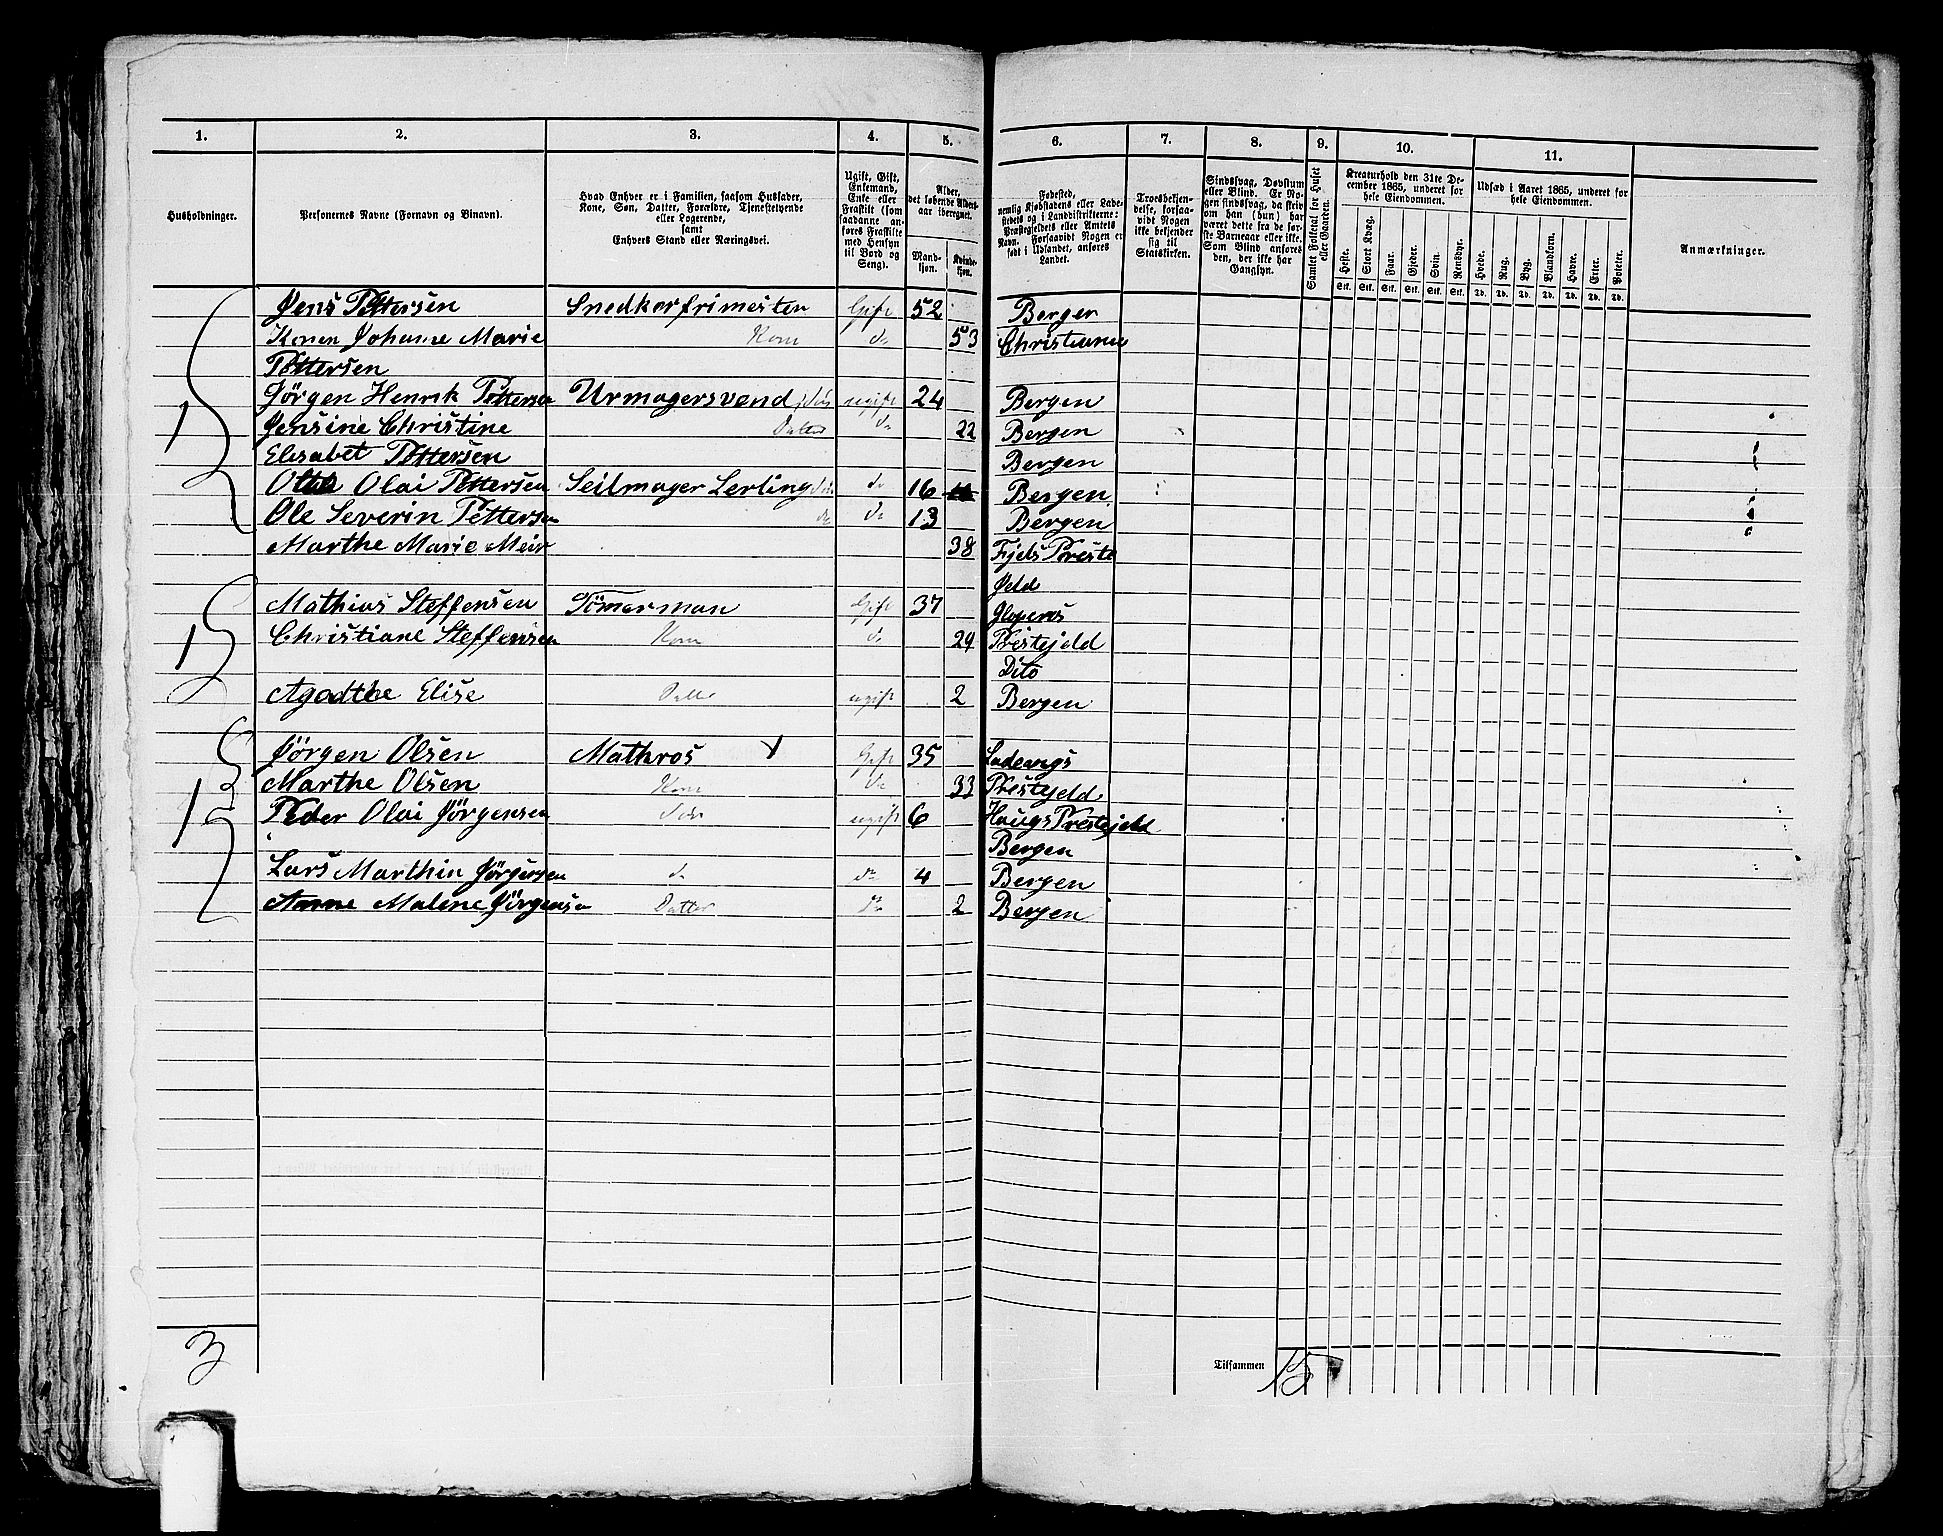 1. 2. 3. 4. 5. 6. 7. 8. 9. 10. 11.
Husholdninger.
Personernes Navne (Fornavn og Binavn).
Hvad Enhver er i Familien, saasom Husfader,
Kone, Søn, Datter, Forældre, Tjenestetyende
eller Logerende,
samt
Enhvers Stand eller Næringsvei.
Ugift, Gift,
Enkemand,
Enke eller
Fraskilt (som
saadanne an-
føres Fraskilte
med Hensyn
til Bord og
Seng).
Alder,
det løbende Alders-
aar iberegnet.
Mand-
kjøn.
Kvinde-
kjøn.
Fødested,
nemlig Kjøbstadens eller Lade-
stedets og i Landdistrikterne:
Præstegjeldets eller Amtets
Navn. Forsaavidt Nogen er
født i Udlandet, anføres
Landet.
Troesbekjen-
delse, forsaa-
vidt Nogen
ikke bekjender
sig til
Statskirken.
Sindssvag, Døvstum
eller Blind. Er No-
gen sindssvag, da skriv
om han (hun) har
været det fra de før-
ste Barneaar eller ikke.
Som Blind anføres
den, der ikke har
Gangsyn.
Samlet Folketal for Huset
eller Gaarden.
Kreaturhold den 31te De-
cember 1865, underet for
hele Eiendommen.
Heste. Stort Kvæg. Faar. Gjeder. Svin. Rensdyr.
Stk. Stk. Stk. Stk. Stk. Stk.
Udsæd i Aaret 1865, underet for
hele Eiendommen.
Hvede. Rug. Byg. Blandkorn. Havre. Erter. Poteter.
Td. Td. Td. Td. Td. Td. Td.
Anmærkninger.
1 Jens Pettersen Snedkerfrimester Gift 52 Bergen
Konen Johanne Marie Kone do 53 Christiania
Pettersen
Jørgen Henrik Pettersen Urmagersvend Søn ugift 24 Bergen
Jensine Christine Datter do 22 Bergen
Elisabet Pettersen Bergen
Olai Pettersen Seilmager Lerling do 16 Bergen
Ole Severin Pettersen do do 13 Bergen
Marthe Marie Meir 38 Fjels Preste
Gjeld
1 Mathias Steffensen Tömerman Gift 37
Christiane Steffensen Kone do 29 Prestejeld
Dito
Agadthe Elise Datter ugift 2 Bergen
1 Jørgen Olsen Mathros Gift 35
Marthe Olsen Kone do 33 Prestejeld
Peder Olai Jørgensen Søn ugift 6 Haugs Prestejeld
Bergen
Lars Marthin Jørgensen do do 4 Bergen
Anne Malene Jørgensen Datter do 2 Bergen
3
Tilsammen 15